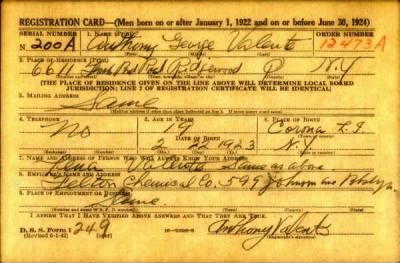 REGISTRATION CARD—(Men born on or after January 1, 1922 and on or before June 30, 1924)
SERIAL NUMBER 1. NAME (Print) ORDER NUMBER
N 200A Anthony George Valente 12473A
2. PLACE OF RESIDENCE (Print)
N.Y.
(THE PLACE OF RESIDENCE GIVEN ON THE LINE ABOVE WILL DETERMINE LOCAL BOARD
JURISDICTION; LINE 2 OF REGISTRATION CERTIFICATE WILL BE IDENTICAL)
3. MAILING ADDRESS
Same
4. TELEPHONE 5. AGE IN YEARS 6. PLACE OF BIRTH
No 19 Corona L.I.
DATE OF BIRTH
2 22 1923 N.Y.
7. NAME AND ADDRESS OF PERSON WHO WILL ALWAYS KNOW YOUR ADDRESS
Valente Same as above
8. EMPLOYER'S NAME AND ADDRESS
Chemical Co. 599 Johnson Ave
9. PLACE OF EMPLOYMENT OR BUSINESS
Same
I AFFIRM THAT I HAVE VERIFIED ABOVE ANSWERS AND THAT THEY ARE TRUE.
D. S. S. Form 1 249
(Revised 6-1-42) Anthony Valente